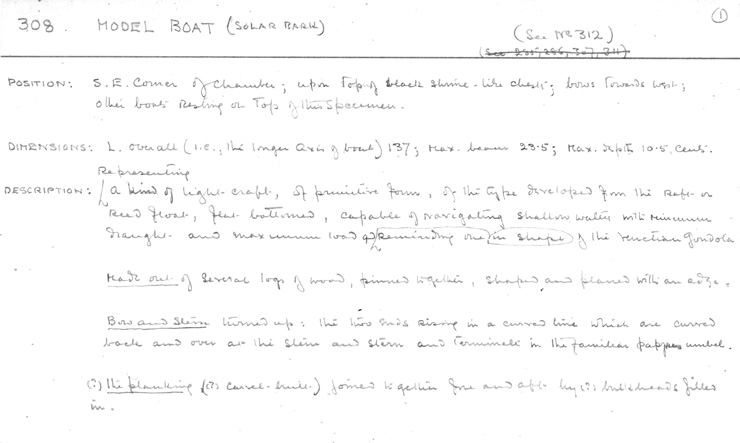 ①
308. MODEL BOAT (SOLAR BARK) (See No 312)
(See 285, 286, 307, 311)
POSITION: S.E. Corner of Chamber; upon top of black shrine-like chests; bows towards west;
other boats resting on top of this specimen.
DIMENSIONS: L. overall (i.e., the longer axis of boat) 137; max. beam 23.5; max. depth 10.5 cents.
Representing
DESCRIPTION: a kind of light craft, of primitive form, of the type developed from the raft or
reed float, flat bottomed, capable of navigating shallow water with minimum
draught and maximum load & reminding one in shape of the Venetian Gondola
Made out of several logs of wood, pinned together, shaped and planed with an adze.
Bow and Stern turned up: the two ends rising in a curved line which are curved
back and over at the stem and stern and terminate in the familiar papyrus umbel.
(?) The planking (?) carvel-built) joined together fore and aft by (?) bulkheads filled
in.